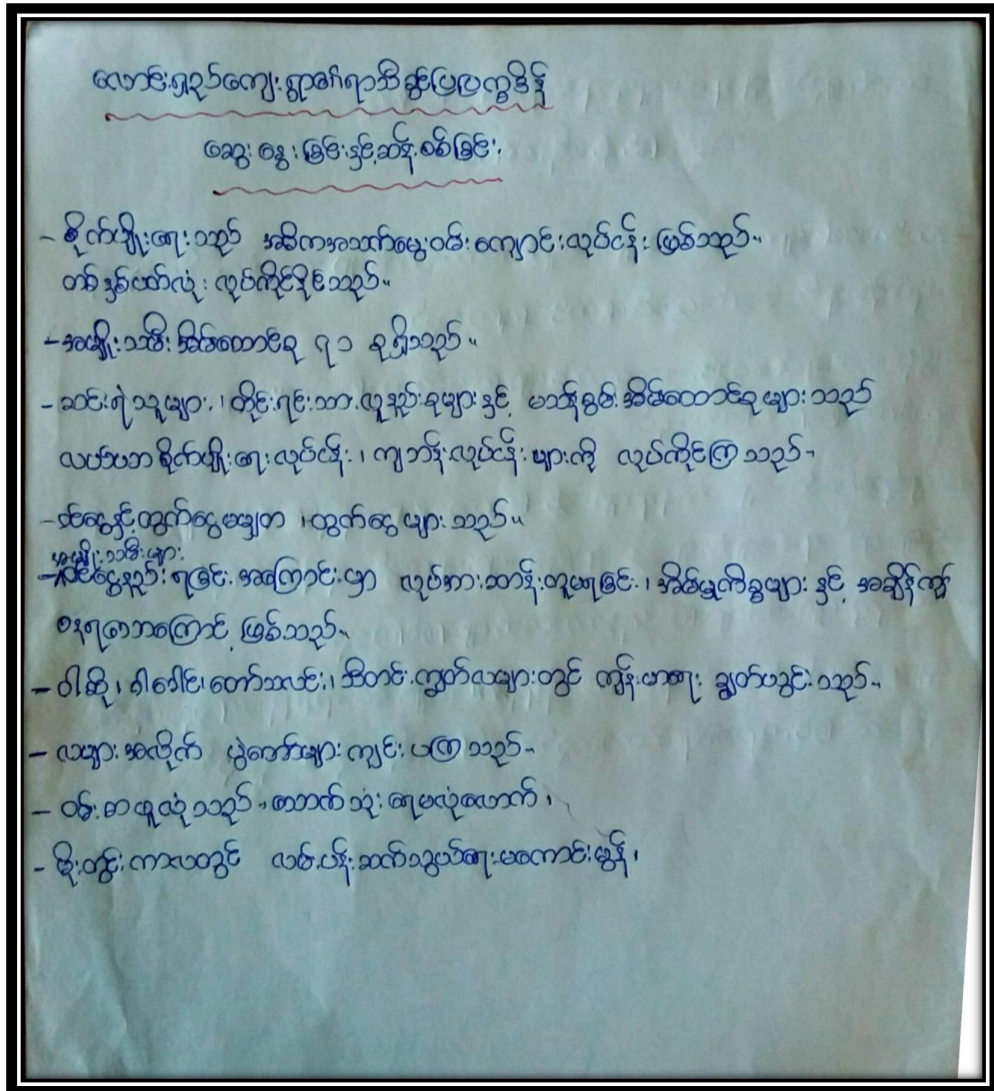 လောင်းရှည်ကျေးရွာ၏ရာသီခွင်ပြပြက္ခဒိန်
ဆွေးနွေးခြင်းနှင့်ဆန်းစစ်ခြင်း
- စိုက်ပျိုးရေးသည် အဓိကအသက်မွေးဝမ်းကျောင်းလုပ်ငန်းဖြစ်သည်။
တစ်နှစ်ပတ်လုံး လုပ်ကိုင်နိုင်သည်။
- အမျိုးသမီးအိမ်ထောင်စု ၇၁ စုရှိသည်။
- ဆင်းရဲသူများ၊ တိုင်းရင်းသားလူနည်းစုများနှင့် မသန်စွမ်းအိမ်ထောင်စုများသည်
လယ်ယာစိုက်ပျိုးရေးလုပ်ငန်း၊ ကျဘန်းလုပ်ငန်းများကို လုပ်ကိုင်ကြသည်။
- ဝင်ငွေနှင့်ထွက်ငွေမမျှတ၊ ထွက်ငွေများသည်။
အမျိုးသမီးများ
- ဝင်ငွေနည်းရခြင်းအကြောင်းမှာ လုပ်အားဆာန်းတူမရခြင်း၊ အိမ်မှုကိစ္စများနှင့် အချိန်ကုန်
စေရသောကြောင့်ဖြစ်သည်။
- ဝါဆို၊ ဝါခေါင်၊ တော်သလင်း၊ သီတင်းကျွတ်လများတွင် ကျန်းမာရေး ချွတ်ယွင်းသည်။
- လများအလိုက် ပွဲတော်များကျင်းပကြသည်။
- ဝမ်းစာဖူလုံသည်။ သောက်သုံးရေမလုံလောက်၊
- မိုးတွင်းကာလတွင် လမ်းပန်းဆက်သွယ်ရေးမကောင်းမွန်၊